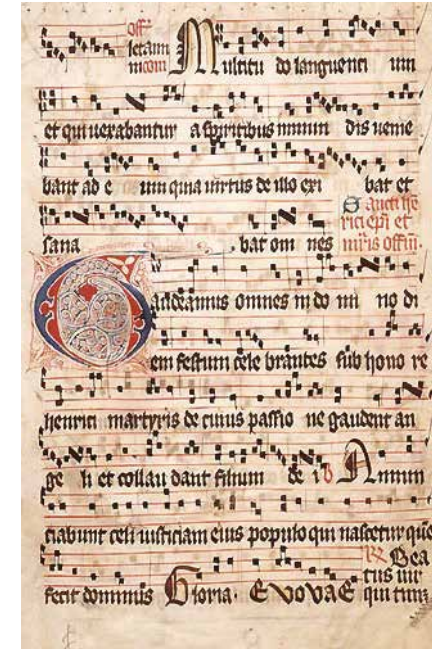 off
letanii
ui com Multitu do languenti um
et qui uexabantur a spiritibus inmun dis uenie
bant ad e um quia uirtus de illo exi bat et
sana bat om nes
Sancti hē
rici epi et
mris offm.
Gaudeamus omnes in do mi no di
em festum cele brātes sub hono re
henrici martyris de cuius passio ne gaudent an
ge li et collau dant filium de i Annun
ciabunt celi iusticiam eius populo qui nascetur quē
fecit dominus Gloria. Evovae
Bea
tus uir
qui tim